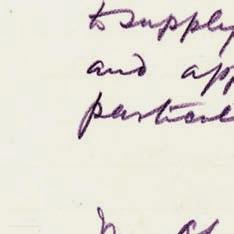 to supply
and app
particul